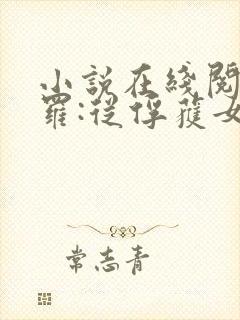 小説在綫閱
羅:從俘獲女
常志青